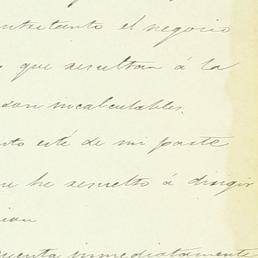 entretanto el negocio
que resultan á la
son incalculables.
esté de mi parte
he resuelto á dirigir
inmediatamente